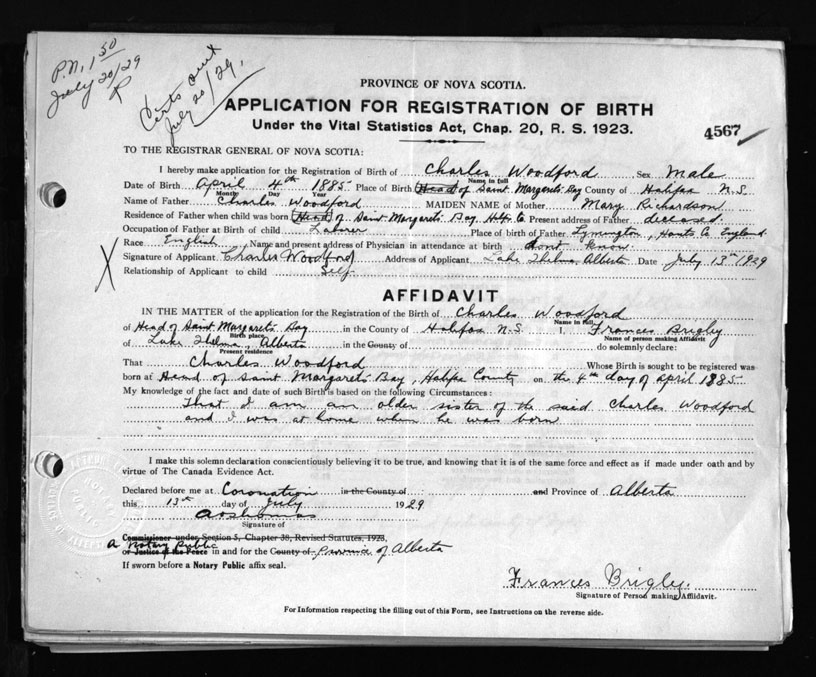 P.N. 1 50
July 20/29
R
Certs out
July 20/29.
PROVINCE OF NOVA SCOTIA.
APPLICATION FOR REGISTRATION OF BIRTH
Under the Vital Statistics Act, Chap. 20, R. S. 1923.
4567
TO THE REGISTRAR GENERAL OF NOVA SCOTIA:
I hereby make application for the Registration of Birth of Charles Woodford Sex Male
Name in full
Date of Birth April 4th 1885 Place of Birth Head of Saint Margarets Bay County of Halifax N.S.
Month Day Year
Name of Father Charles Woodford MAIDEN NAME of Mother Mary Richardson
Residence of Father when child was born Head of Saint Margarets Bay Hfx. Co Present address of Father deceased
Occupation of Father at Birth of child Laborer Place of birth of Father Lymington, Hants Co England
Race English Name and present address of Physician in attendance at birth dont know
Signature of Applicant Charles Woodford Address of Applicant Lake Thelma, Alberta Date July 13th 1929
Relationship of Applicant to child Self
AFFIDAVIT
IN THE MATTER of the application for the Registration of the Birth of Charles Woodford
Name in full
of Head of Saint Margarets Bay in the County of Halifax N.S. I, Frances Brigley
Birth place Name of person making Affidavit
of Lake Thelma, Alberta in the County of do solemnly declare:
Present residence
That Charles Woodford Whose Birth is sought to be registered was
born at Head of Saint Margarets Bay, Halifax County on the 4th day of April 1885
My knowledge of the fact and date of such Birth is based on the following Circumstances:
That I am an older sister of the said Charles Woodford
and I was at home when he was born
I make this solemn declaration conscientiously believing it to be true, and knowing that it is of the same force and effect as if made under oath and by
virtue of The Canada Evidence Act.
Declared before me at Coronation in the County of and Province of Alberta
this 13th day of July 1929
Signature of
Commissioner under Section 5, Chapter 38, Revised Statutes, 1923,
a Notary Public
or Justice of the Peace in and for the County of Province of Alberta
If sworn before a Notary Public affix seal.
Frances Brigley.
Signature of Person making Affidavit.
For Information respecting the filling out of this Form, see Instructions on the reverse side.